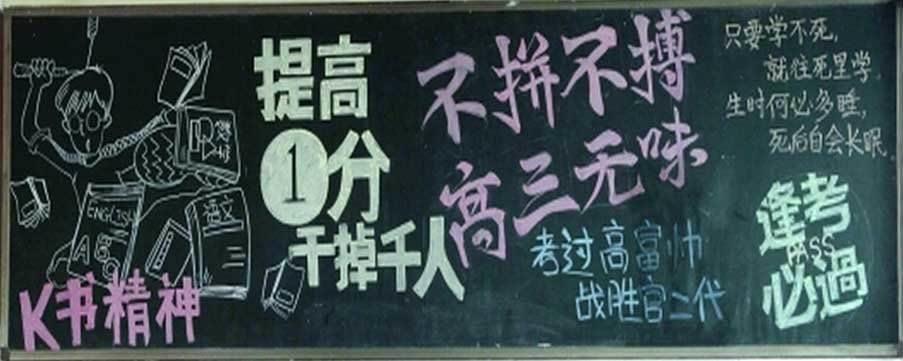 K书精神
ENGLISH
ABC
语文
提高
1分
干掉千人
不拼不搏
高三无味
考过高富帅
战胜官二代
只要学不死，
就往死里学。
生时何必多睡，
死后自会长眠。
逢考
PASS
必過